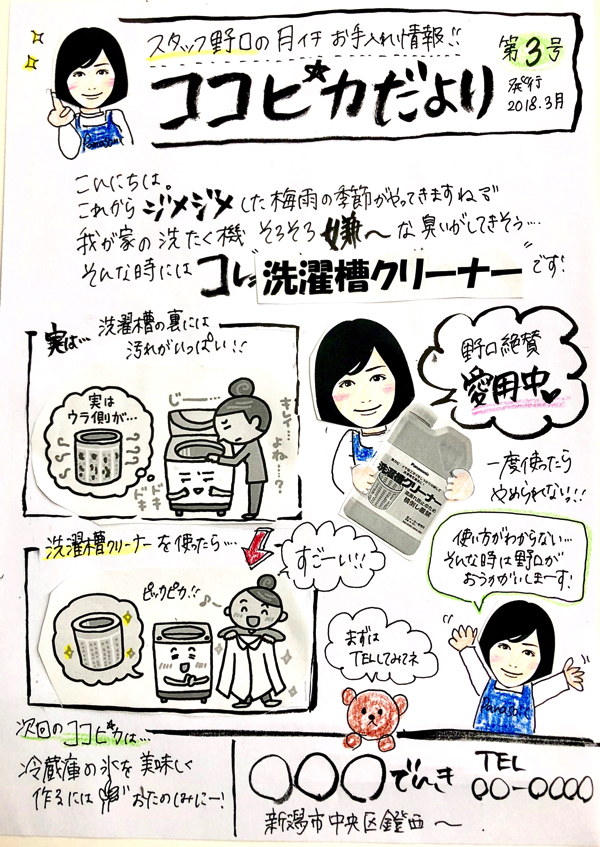 スタッフ野口の月イチお手入れ情報!!
ココピカだより
第3号
発行
2018.3月
Panasonic
こんにちは。
これからジメジメした梅雨の季節がやってきますね
我が家の洗たく機 そろそろ嫌〜な臭いがしてきそう…
そんな時にはコレ 洗濯槽クリーナー です!
実は… 洗濯槽の裏には
汚れがいっぱい!!
実は
ウラ側が…
じー…
キレイ…
よね…?
ドキ
ドキ
野口絶賛
愛用中
Panasonic
洗濯槽クリーナー
一度使ったら
やめられない!!
洗濯槽クリーナーを使ったら…
すごーい!!
ピッカピカ!!
使い方がわからない…
そんな時は野口が
おうかがいしまーす!
まずは
TELしてみてネ
Panasonic
次回のココピカは…
冷蔵庫の氷を美味しく
作るには おたのしみにー!
〇〇〇でんき
TEL
〇〇-〇〇〇〇
新潟市中央区鐙西〜